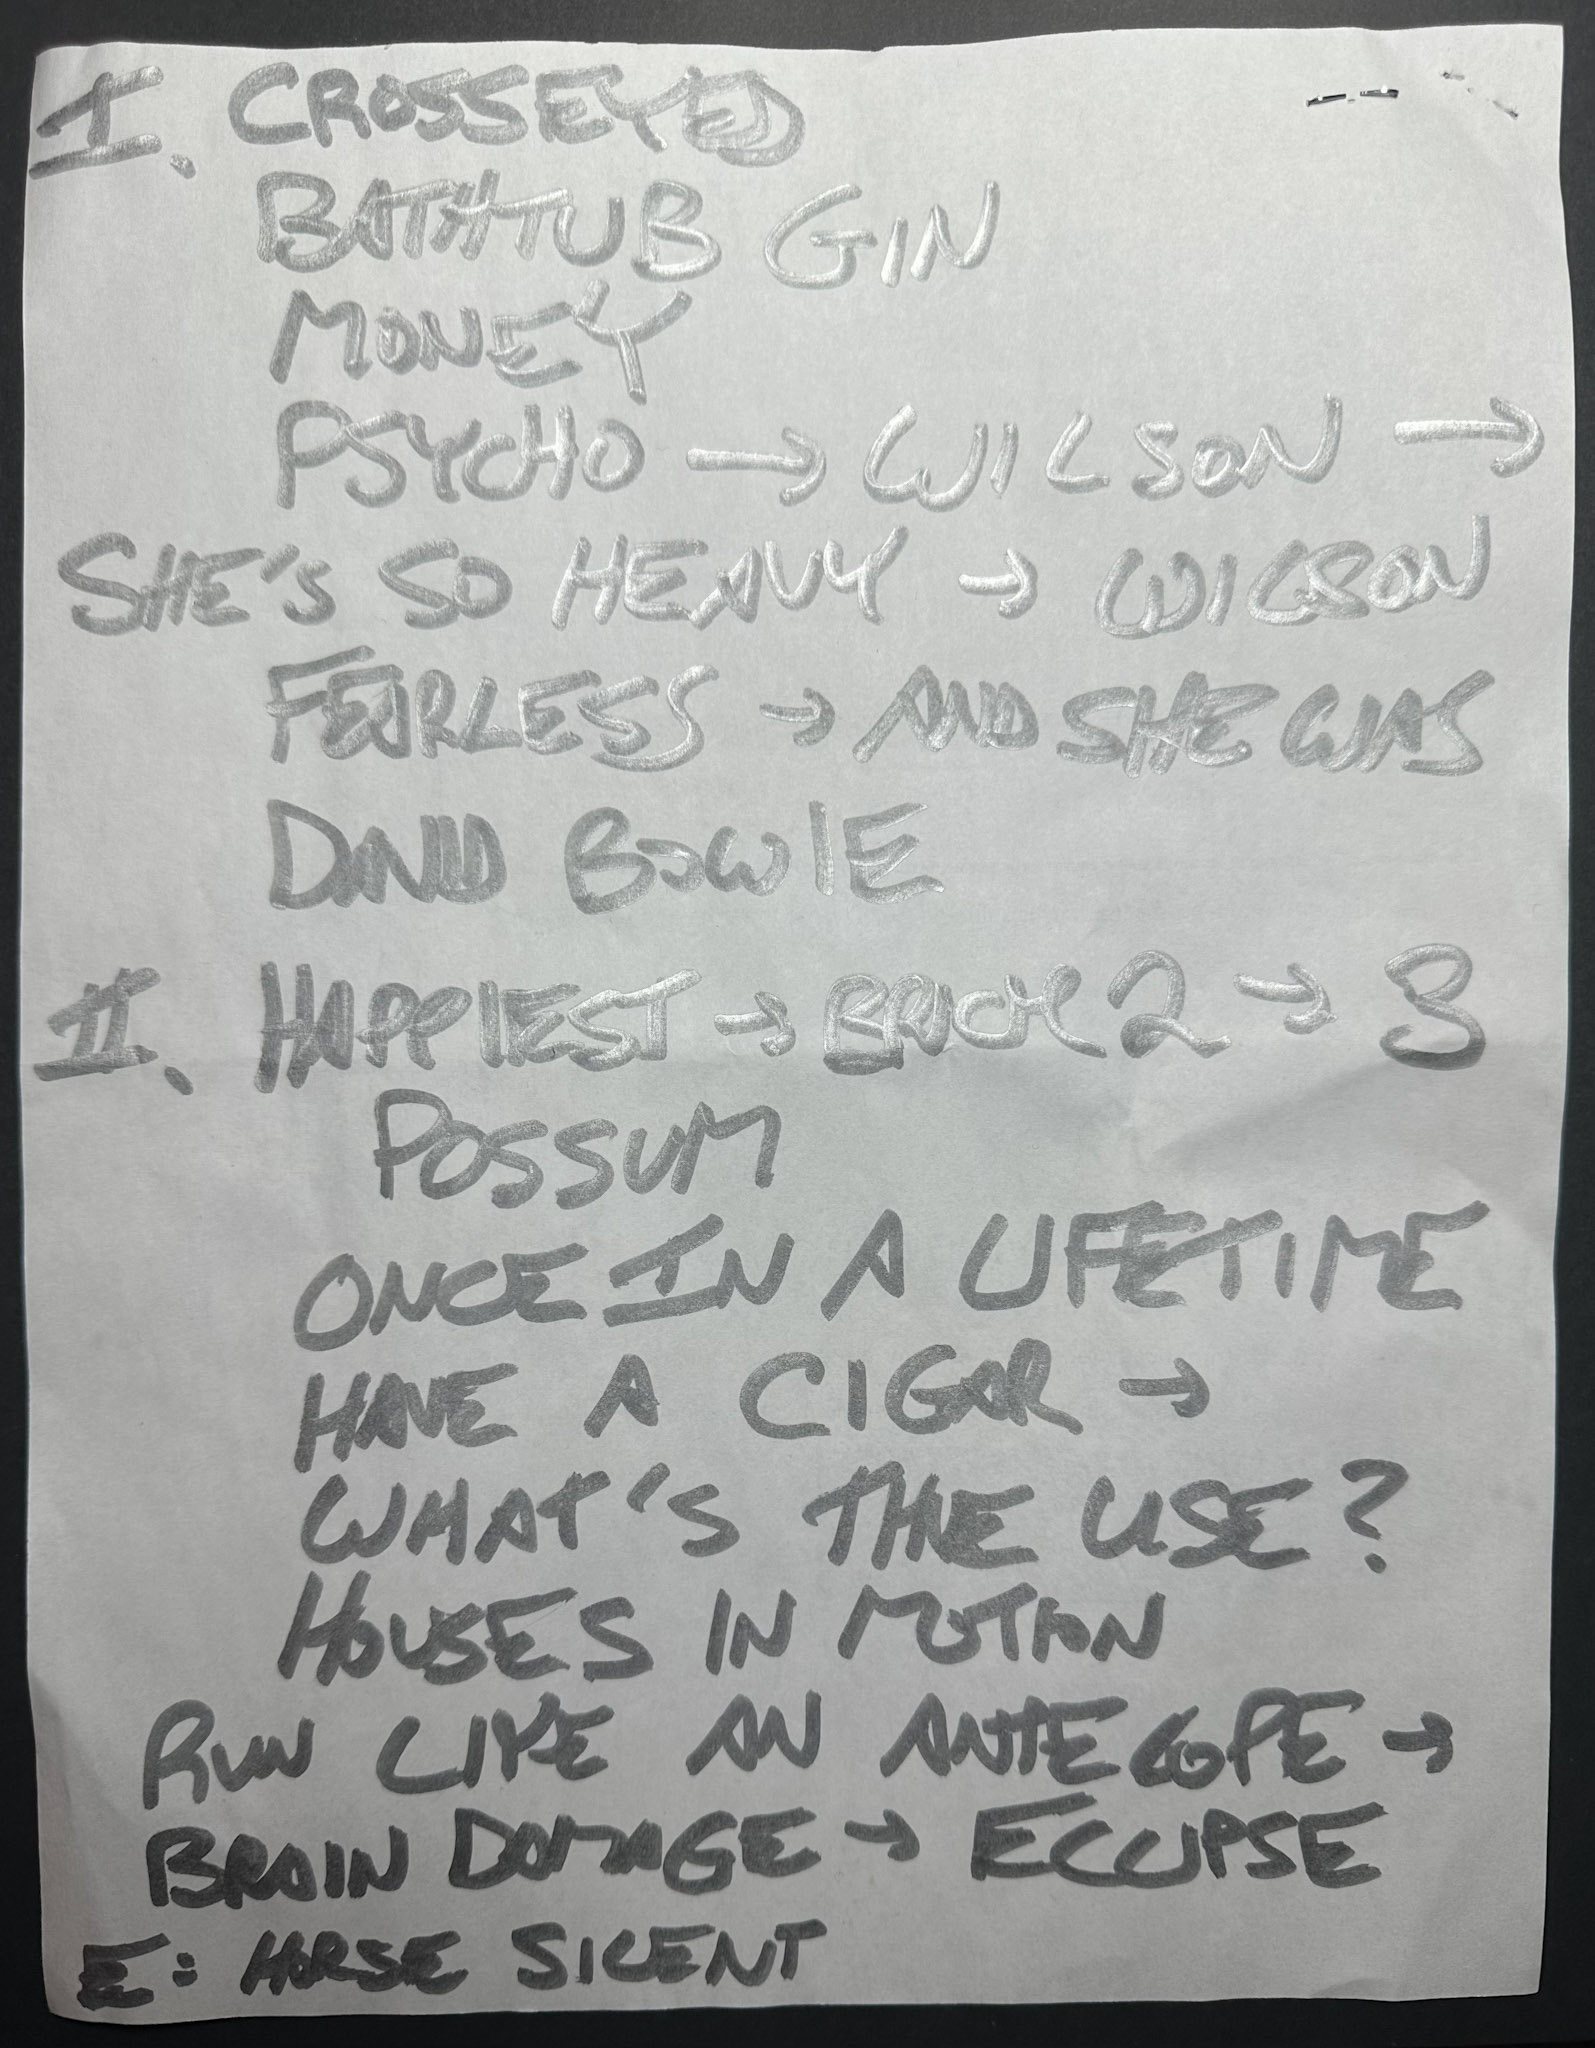 I. CROSSEYED
BATHTUB GIN
MONEY
PSYCHO → WILSON →
SHE'S SO HEAVY → WILSON
FEARLESS → AND SHE WAS
DAVID BOWIE
II. HAPPIEST → BRICK 2 → 3
POSSUM
ONCE IN A LIFETIME
HAVE A CIGAR →
WHAT'S THE USE?
HOUSES IN MOTION
RUN LIKE AN ANTELOPE →
BRAIN DAMAGE → ECLIPSE
E: HORSE SILENT